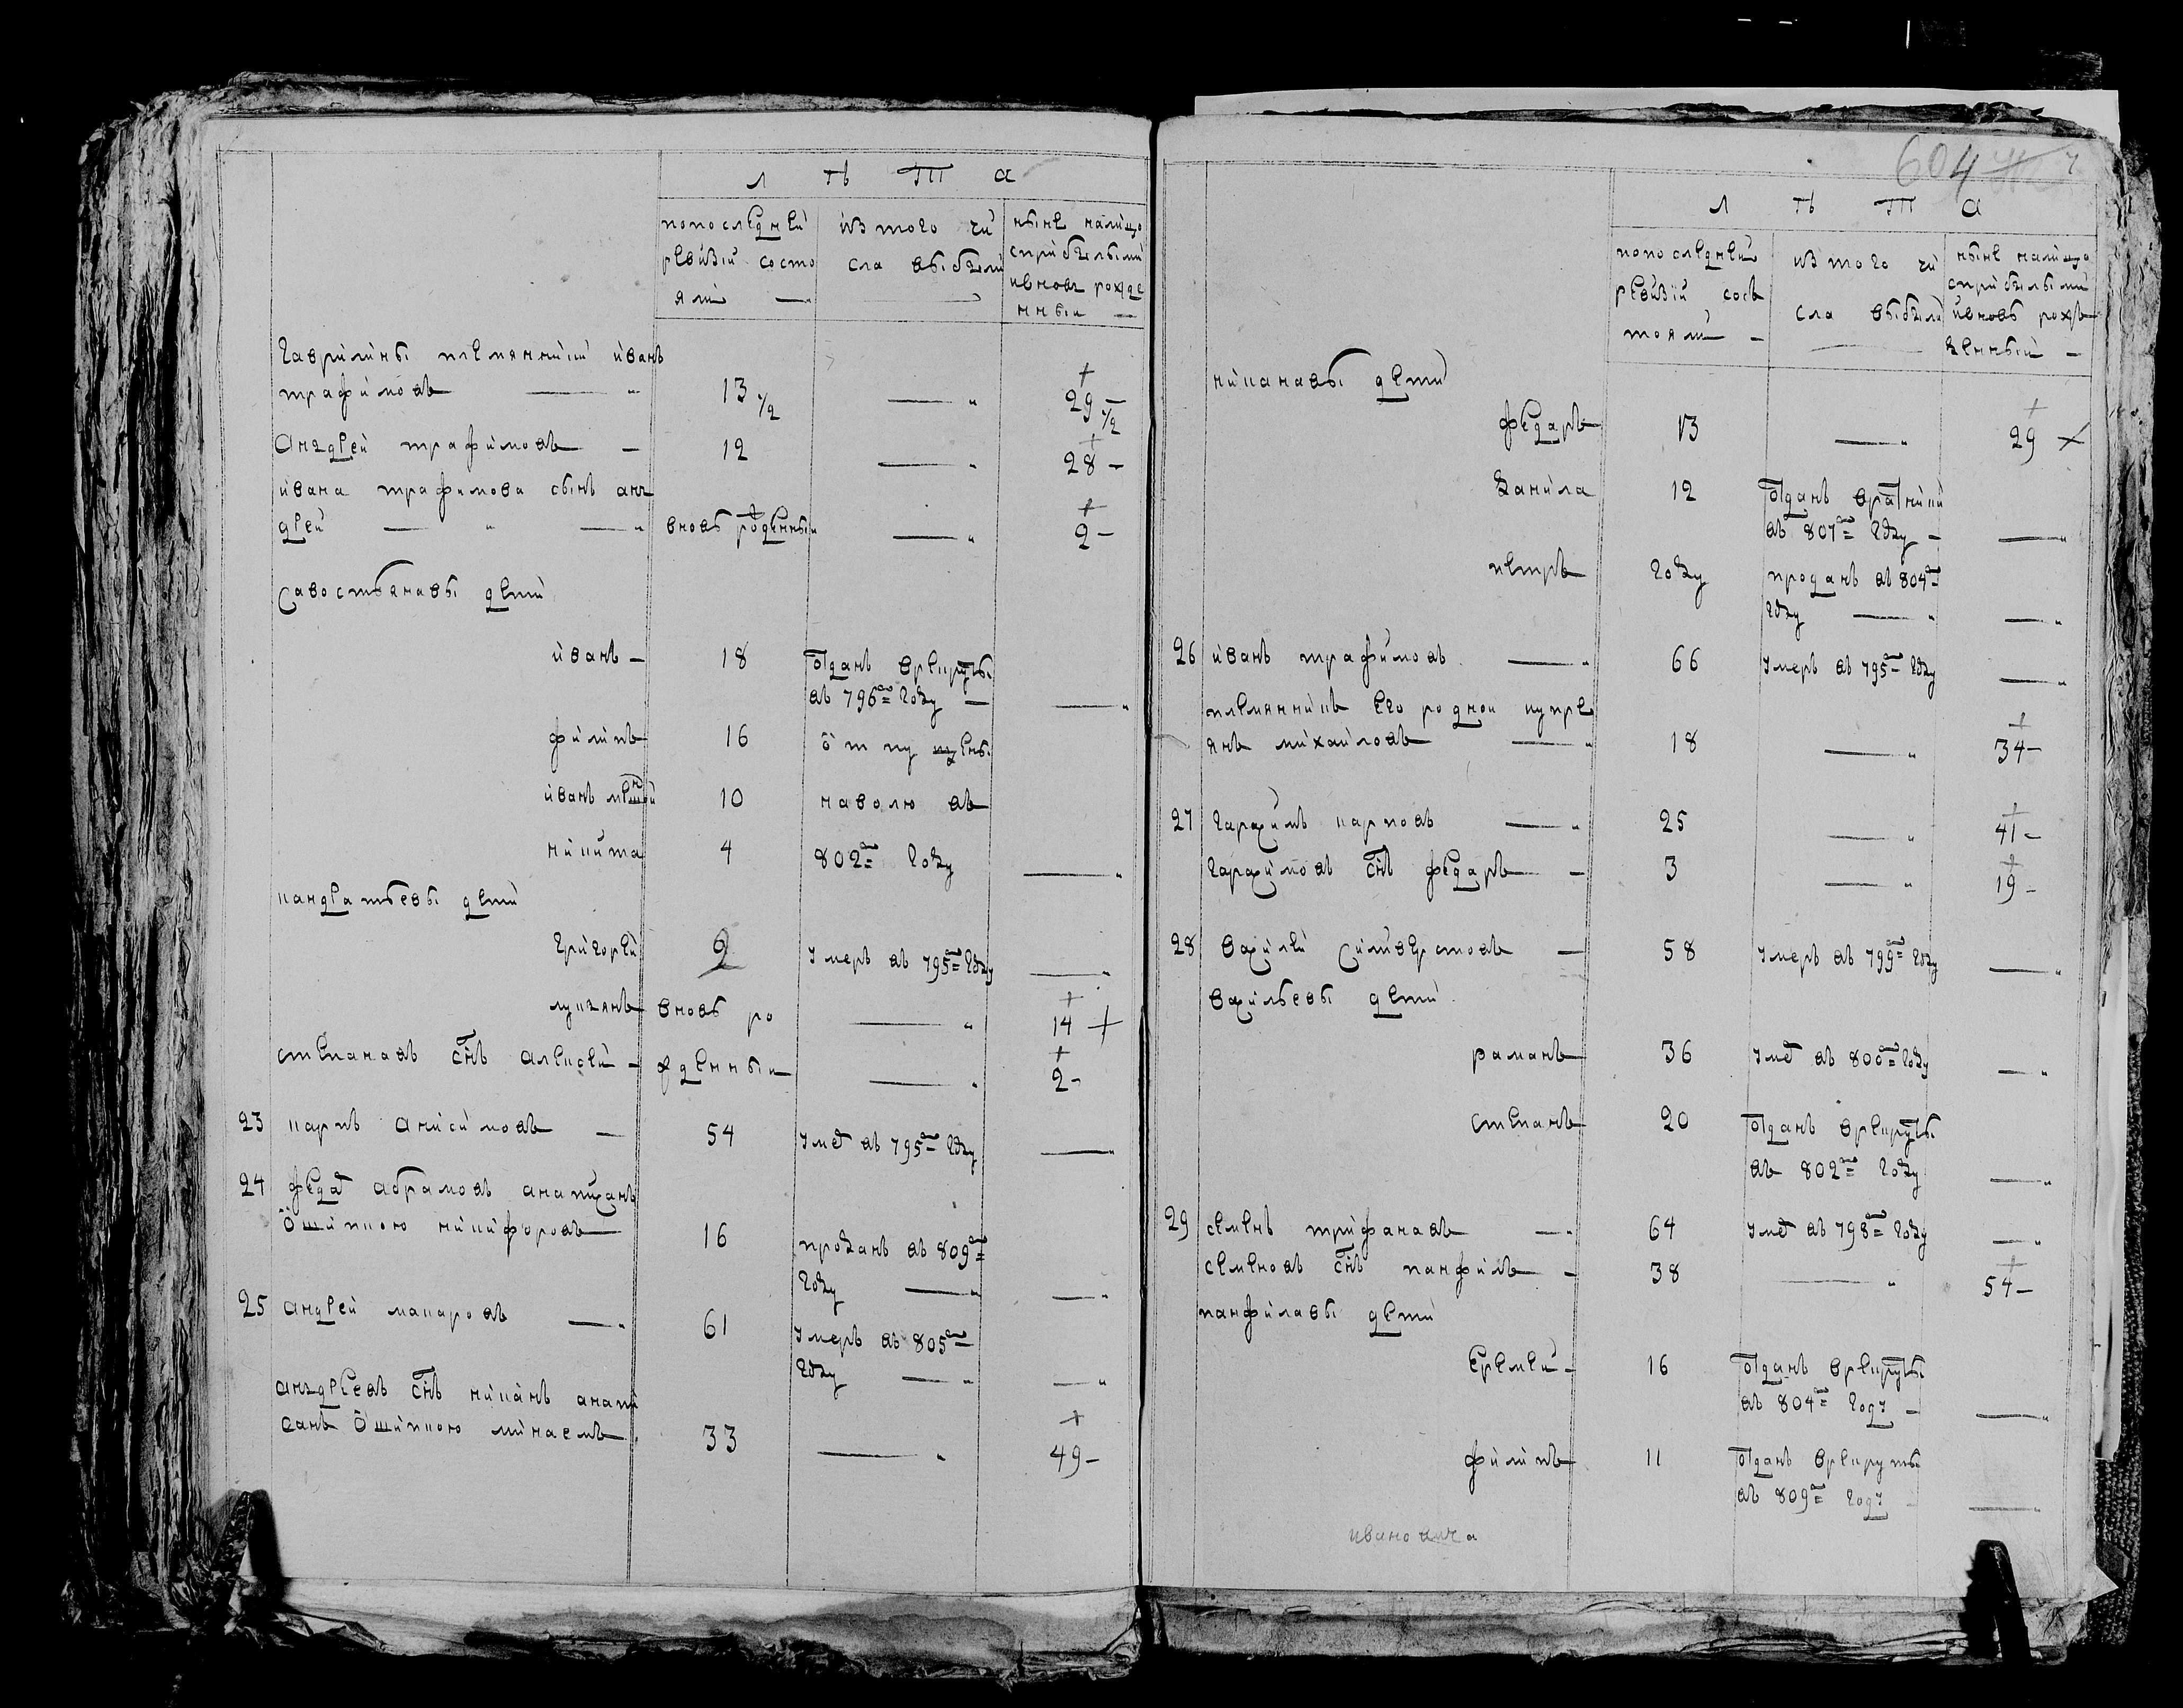 лѣта
попоследней ревизiи состояли
изтого числа выбыли
ныне налицо сприбылыми ивновь рожденныи
Гаврилины племянники иванъ
трафимовъ 13 1/2 — 29 1/2
Андрей трафимовъ — 12 — 28
ивана трафимова сынъ ан
дрей вновь рожденныи — 2
Савостьянавы дети
иванъ — 18 отданъ врекруты
въ 796м году —
филипъ 16 отпущены
иванъ меншой 10 наволю въ
никита 4 802м году —
кандратьевы дети
григорей 9 умеръ въ 795м году —
лукьянъ вновь ро — 14
степанавъ снъ алексей жденныи — 2
23 карпъ анисимовъ — 54 умер въ 795м году —
24 федар абрамовъ анаписанъ
ошипкою никифоровъ 16 проданъ въ 809м
году —
25 андрей макаровъ — 61 умеръ въ 805м
году —
андреевъ снъ никанъ анапи
санъ ошипкою минаемъ 33 — 49
604
лѣта
попоследней ревизiи состояли
изтого числа выбыли
ныне налицо сприбылыми ивновь рожденный
никанавы дети
федаръ 13 — 29
данила 12 отданъ вратники
въ 807м году —
петръ году проданъ въ 804м
году —
26 иванъ трафимовъ — 66 умеръ въ 795м году —
племянникъ его роднои купре
янъ михаиловъ — 18 — 34
27 Гарасимъ карповъ — 25 — 41
Гарасимовъ снъ федаръ — 3 — 19
28 василей силиверстовъ — 58 умеръ въ 799м году —
васильевы дети
раманъ 36 умер въ 800м году —
степанъ 20 отданъ врекруты
въ 802м году —
29 семенъ трифанавъ — 64 умер въ 798м году —
семеновъ снъ панфилъ — 38 — 54
панфилавы дети
еремей — 16 отданъ врекруты
въ 804м году —
филипъ 11 отданъ врекруты
въ 809м году —